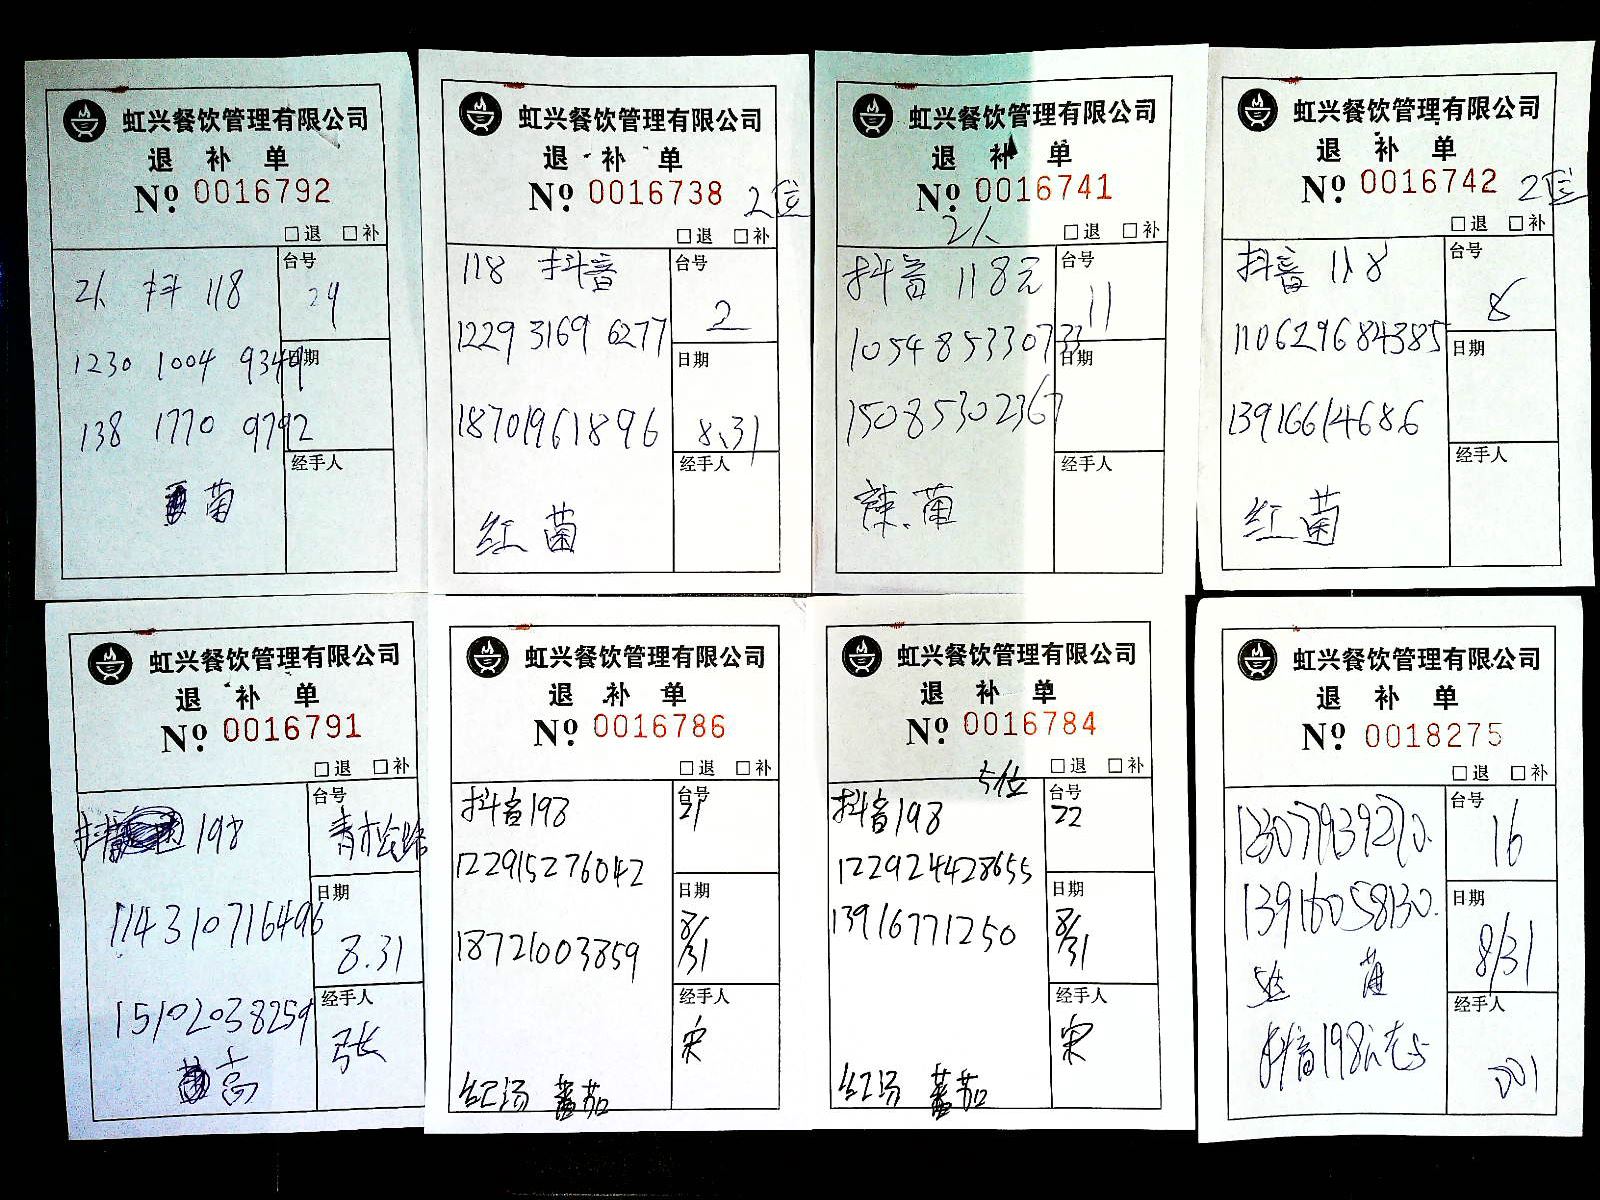 虹兴餐饮管理有限公司
退 补 单
No. 0016792
□退 □补
台号
2人 抖 118
24
1230 1004 9349
日期
138 1770 9792
经手人
菌
虹兴餐饮管理有限公司
退 补 单
No. 0016738 2位
□退 □补
118 抖音
台号
2
1229 3169 6277
日期
18701961896
8.31
经手人
红 菌
虹兴餐饮管理有限公司
退 补 单
No. 0016741
2人
□退 □补
抖音 118元
台号
11
105485330733
日期
15085302367
经手人
辣.菌
虹兴餐饮管理有限公司
退 补 单
No. 0016742 2位
□退 □补
抖音 118
台号
8
110629684385
日期
13916614686
经手人
红 菌
虹兴餐饮管理有限公司
退 补 单
No. 0016791
□退 □补
台号
198
日期
114310716496
8.31
15102038259
经手人
张
虹兴餐饮管理有限公司
退 补 单
No. 0016786
□退 □补
抖音198
台号
21
122915276042
日期
8/31
18721003859
经手人
宋
红汤 番茄
虹兴餐饮管理有限公司
退 补 单
No. 0016784
5位
□退 □补
抖音198
台号
22
122924428655
日期
8/31
13916771250
经手人
宋
红汤 番茄
虹兴餐饮管理有限公司
退 补 单
No. 0018275
□退 □补
台号
16
123077939270.
日期
13916058130.
8/31
菌
经手人
抖音198元
001